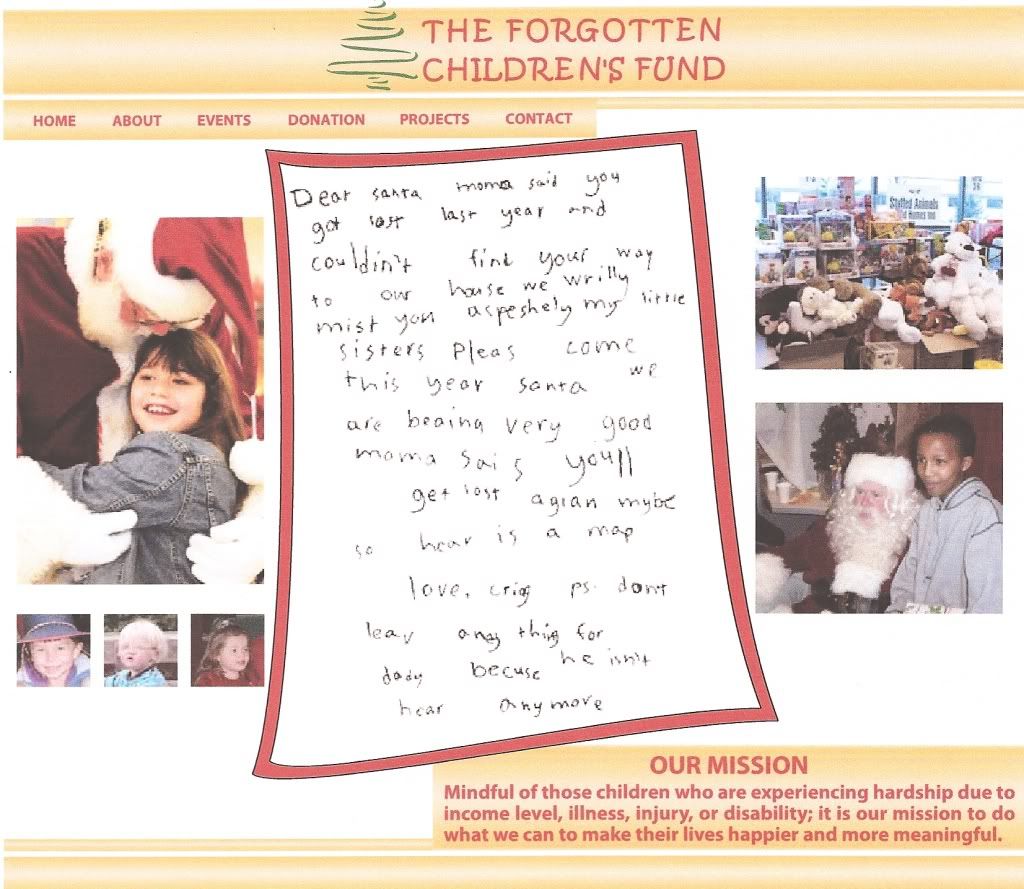 THE FORGOTTEN
CHILDREN'S FUND
HOME ABOUT EVENTS DONATION PROJECTS CONTACT
Dear santa moma said you
got lost last year and
couldin't find your way
to our house we wrilly
mist you aspeshely my little
sisters Pleas come
this year santa we
are beaing very good
moma sais you'll
get lost agian mybe
so hear is a map
love, crig ps. dont
leav any thing for
dady becuse he isn't
hear anymore
Stuffed Animals
OUR MISSION
Mindful of those children who are experiencing hardship due to
income level, illness, injury, or disability; it is our mission to do
what we can to make their lives happier and more meaningful.